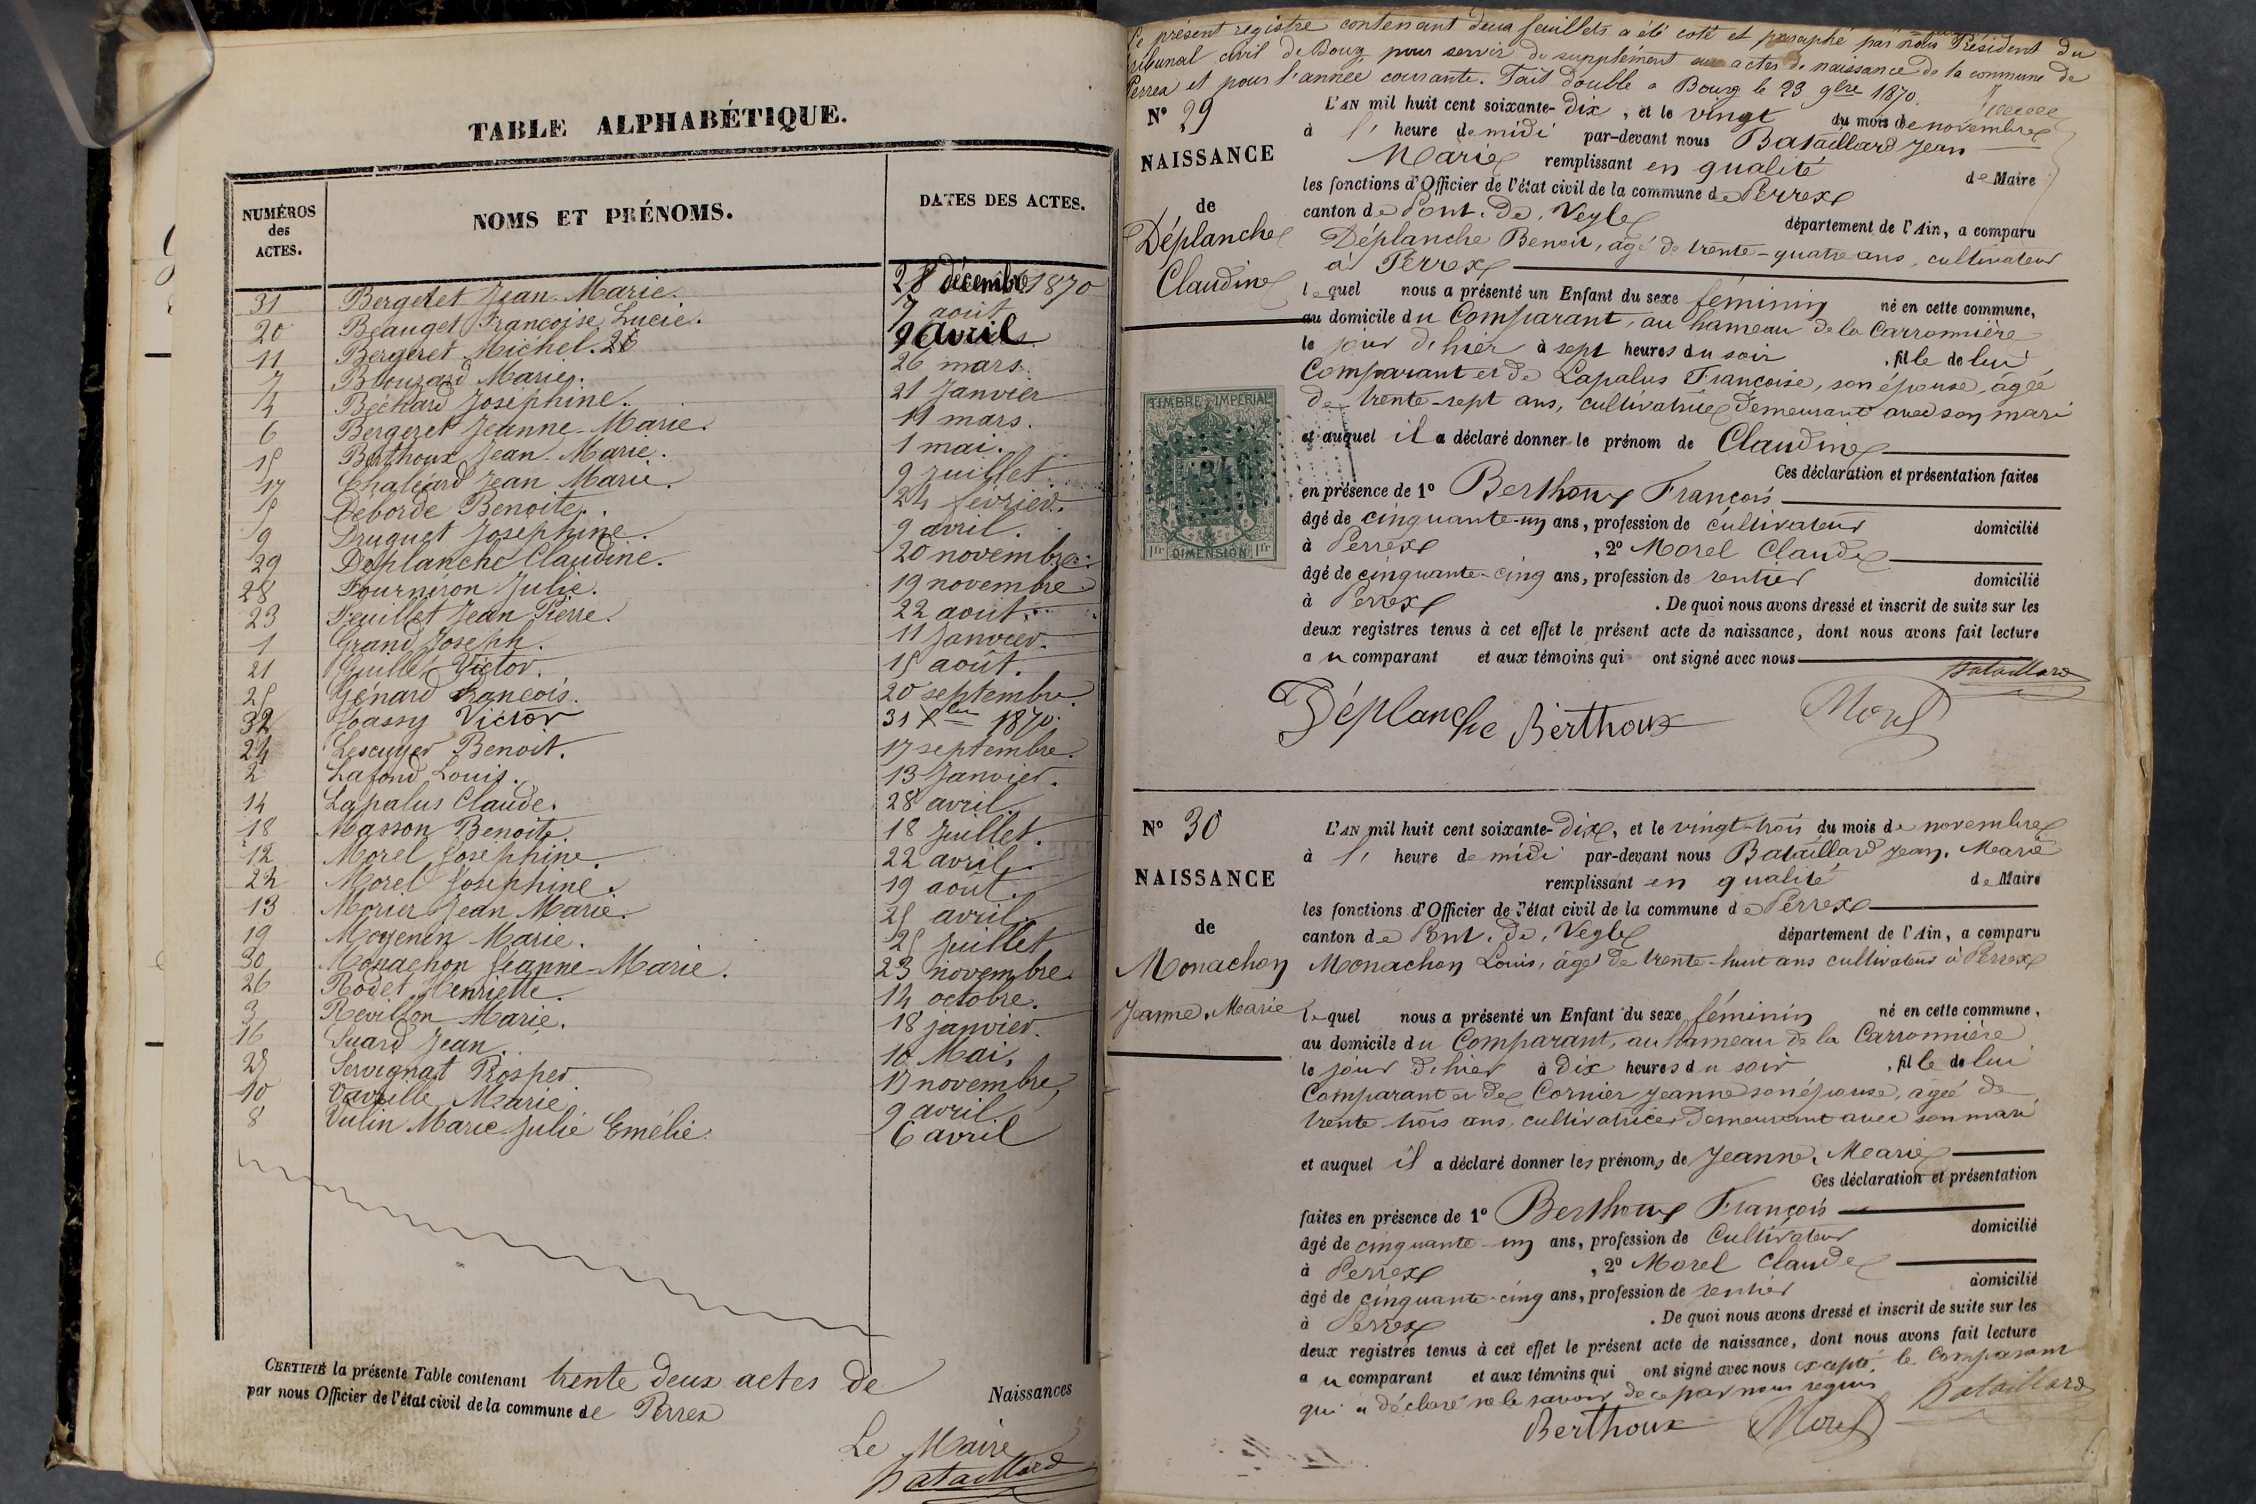 TABLE ALPHABÉTIQUE.
NUMÉROS des ACTES.
NOMS ET PRÉNOMS.
DATES DES ACTES.
31 Bergeret Jean-Marie. 28 décembre 1870
20 Beauget Françoise Lucie. 7 août
11 Bergeret Michel. 9 avril
7 Blouzard Marie. 26 mars.
4 Béchard Joséphine. 21 Janvier
6 Bergeret Jeanne-Marie. 11 mars.
15 Berthoux Jean-Marie. 1 mai.
17 Chaléard Jean Marie. 9 juillet.
5 Deborde Benoite. 24 février.
9 Druguet Josephine. 9 avril.
29 Déplanche Claudine. 20 novembre.
28 Fourniron Julie. 19 novembre
23 Feuillet Jean Pierre. 22 août.
1 Grand Joseph. 11 Janvier.
21 Guillet Victor. 15 août.
25 Génard François. 20 septembre.
32 Joassy Victor 31 Xbre 1870.
24 Lescuyer Benoit. 17 septembre.
2 Lafond Louis. 13 Janvier.
14 Lapalus Claude. 28 avril.
18 Masson Benoite. 18 Juillet.
12 Morel Josephine. 22 avril.
22 Morel Joséphine. 19 août.
13 Morier Jean Marie. 25 avril.
19 Moyenin Marie. 25 Juillet
30 Monachon Jeanne-Marie. 23 novembre.
26 Rodet Henriette. 14 octobre.
3 Revillon Marie. 18 janvier.
16 Suard Jean. 10 Mai.
27 Servignat Prosper 17 novembre
10 Vavrille Marie 9 avril
8 Vulin Marie Julie Emélie. 6 avril
CERTIFIÉ la présente Table contenant trente deux actes de Naissances
par nous Officier de l'état civil de la commune de Perrex
Le Maire
Bataillard
Le présent registre contenant deux feuillets a été coté et paraphé par nous Président du
tribunal civil de Bourg, pour servir de supplément aux actes de naissance de la commune de
Perrex et pour l'année courante. Fait double a Bourg le 23 9bre 1870.
N° 29
NAISSANCE
de
Déplanche
Claudine
L'AN mil huit cent soixante-Dix, et le vingt du mois de novembre
à l' heure de midi par-devant nous Bataillard Jean
Marie remplissant en qualité de Maire
les fonctions d'Officier de l'état civil de la commune de Perrex
canton de Pont. de. Veyle département de l'Ain, a comparu
Déplanche Benoit, agé de trente-quatre ans, cultivateur
à Perrex
lequel nous a présenté un Enfant du sexe féminin né en cette commune,
au domicile du Comparant, au hameau de la Carronnière
le jour d'hier à sept heures du soir, fille de lui
Comparant et de Lapalus Françoise, son épouse, âgée
de trente-sept ans, cultivatrice demeurant avec son mari
et auquel il a déclaré donner le prénom de Claudine
Ces déclaration et présentation faites
en présence de 1° Berthoux François
âgé de cinquante-un ans, profession de cultivateur domicilié
à Perrex, 2° Morel Claude
âgé de cinquante-cinq ans, profession de rentier domicilié
à Perrex. De quoi nous avons dressé et inscrit de suite sur les
deux registres tenus à cet effet le présent acte de naissance, dont nous avons fait lecture
au comparant et aux témoins qui ont signé avec nous
Bataillard
Déplanche Berthoux Morel
TIMBRE IMPERIAL
1fr DIMENSION 1fr
N° 30
NAISSANCE
de
Monachon
Jeanne. Marie
L'AN mil huit cent soixante-Dix, et le vingt-trois du mois de novembre
à l' heure de midi par-devant nous Bataillard Jean. Marie
remplissant en qualité de Maire
les fonctions d'Officier de l'état civil de la commune de Perrex
canton de Pont. de. Veyle département de l'Ain, a comparu
Monachon Louis, âgé de trente-huit ans cultivateur à Perrex
lequel nous a présenté un Enfant du sexe féminin né en cette commune,
au domicile du Comparant, au hameau de la Carronnière
le jour d'hier à dix heures du soir, fille de lui
Comparant et de Cornier Jeanne son épouse, âgée de
trente-trois ans, cultivatrice demeurant avec son mari
et auquel il a déclaré donner les prénoms de Jeanne. Marie
Ces déclaration et présentation
faites en présence de 1° Berthoux François
âgé de cinquante-un ans, profession de Cultivateur domicilié
à Perrex, 2° Morel Claude
âgé de cinquante-cinq ans, profession de rentier domicilié
à Perrex. De quoi nous avons dressé et inscrit de suite sur les
deux registres tenus à cet effet le présent acte de naissance, dont nous avons fait lecture
au comparant et aux témoins qui ont signé avec nous excepté le Comparant
qui a déclaré ne le savoir de ce par nous requis
Bataillard
Berthoux Morel